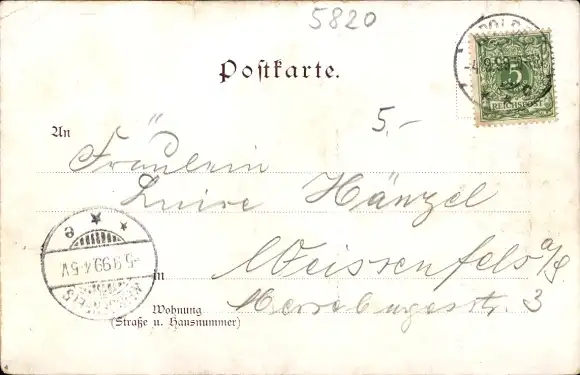 5820
Postkarte.
5
REICHSPOST
5.-
An
Fräulein
Luise Hänzel
-5.9.99.4-5V.
in Weissenfels a/S
Wohnung
(Straße u. Hausnummer)
Merseburgerstr. 3